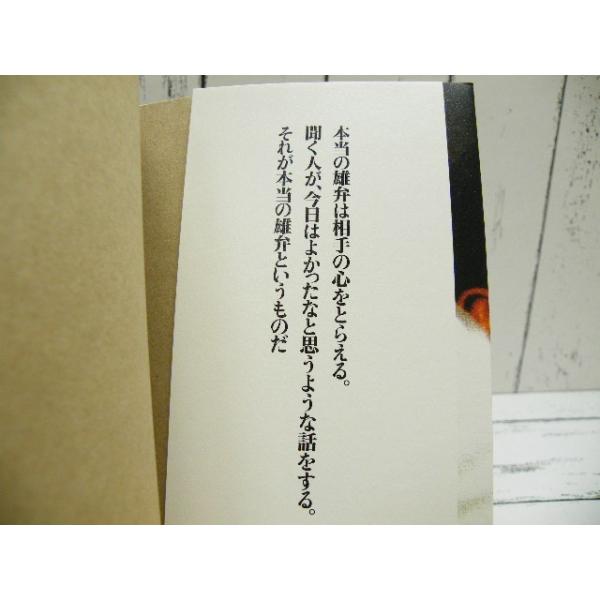 本当の雄弁は相手の心をとらえる。
聞く人が、今日はよかったなと思うような話をする。
それが本当の雄弁というものだ